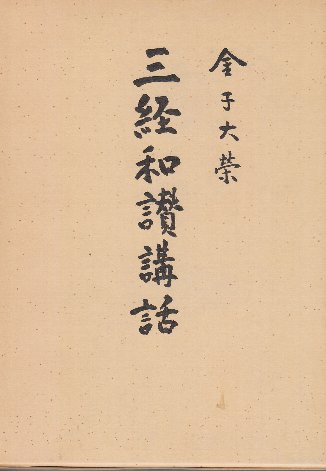 金子大榮
三経和讃講話